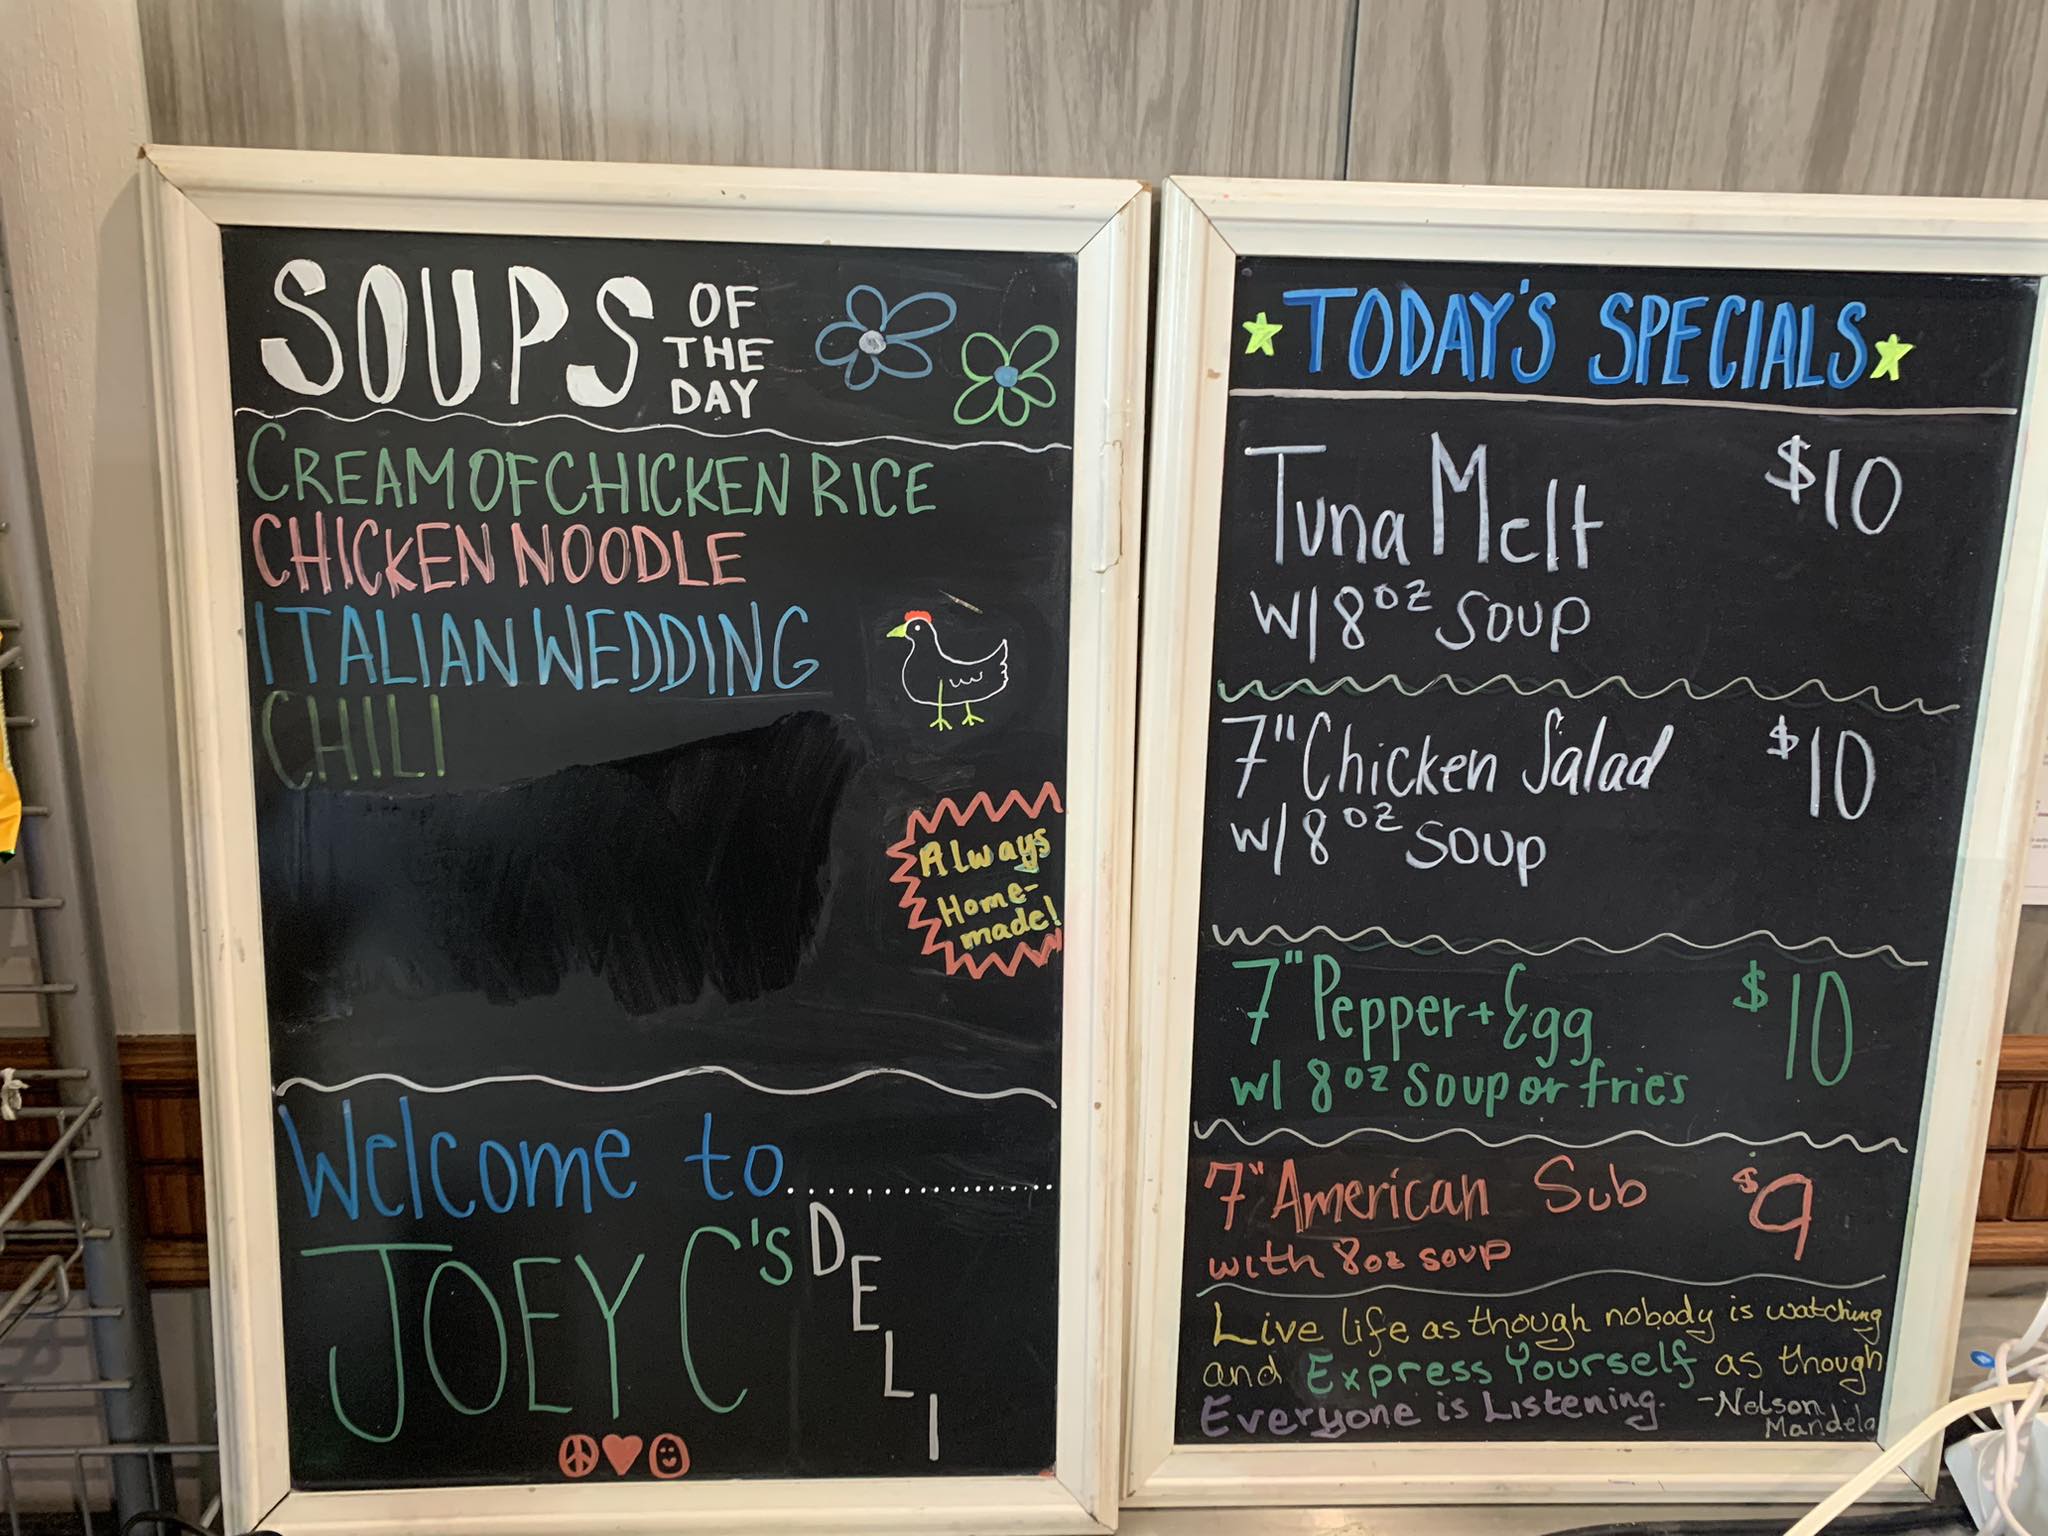 SOUPS OF THE DAY
CREAM OF CHICKEN RICE
CHICKEN NOODLE
ITALIAN WEDDING
CHILI
Always
Home-
made!
Welcome to..........................
JOEY C'S DELI
TODAY'S SPECIALS
Tuna Melt $10
W/ 8oz SOUP
7" Chicken Salad $10
W/ 8oz SOUP
7" Pepper + Egg $10
w/ 8oz Soup or fries
7" American Sub $9
with 8oz soup
Live life as though nobody is watching
and Express Yourself as though
Everyone is Listening. -Nelson
Mandela